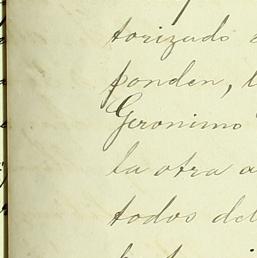 torizado
ponden,
Geronimo
la otra a
todos del